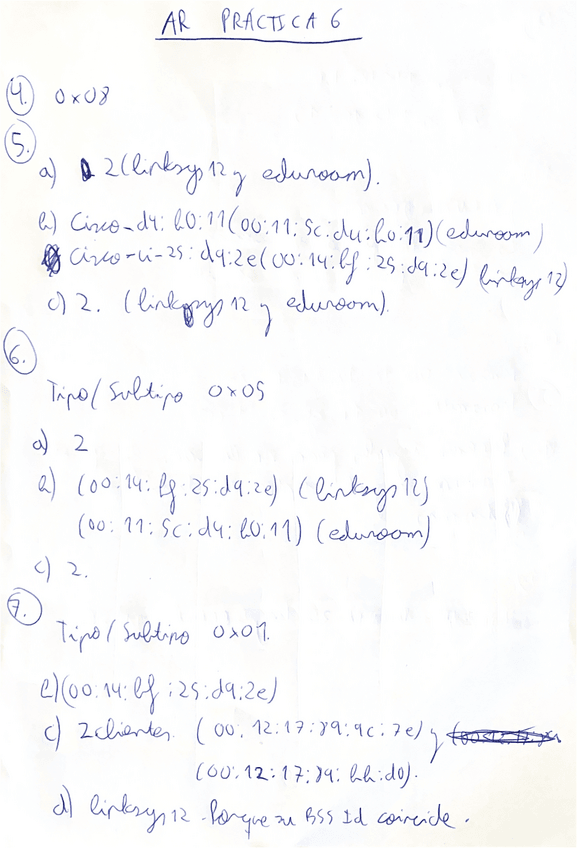 AR PRÁCTICA 6
4. 0x08
5.
a) 2 (linksys12 y eduroom).
b) Cisco-d4:b0:11 (00:11:5c:d4:b0:11) (eduroom)
Cisco-li-25:d9:2e (00:14:bf:25:d9:2e) (linksys12)
c) 2. (linksys12 y eduroom).
6.
Tipo/Subtipo 0x05
a) 2
b) (00:14:bf:25:d9:2e) (linksys12)
(00:11:5c:d4:b0:11) (eduroom)
c) 2.
7.
Tipo/Subtipo 0x01.
b) (00:14:bf:25:d9:2e)
c) 2 clientes. (00:12:17:89:9c:7e) y
(00:12:17:89:bb:d0).
d) linksys12. Porque su BSS Id coincide.